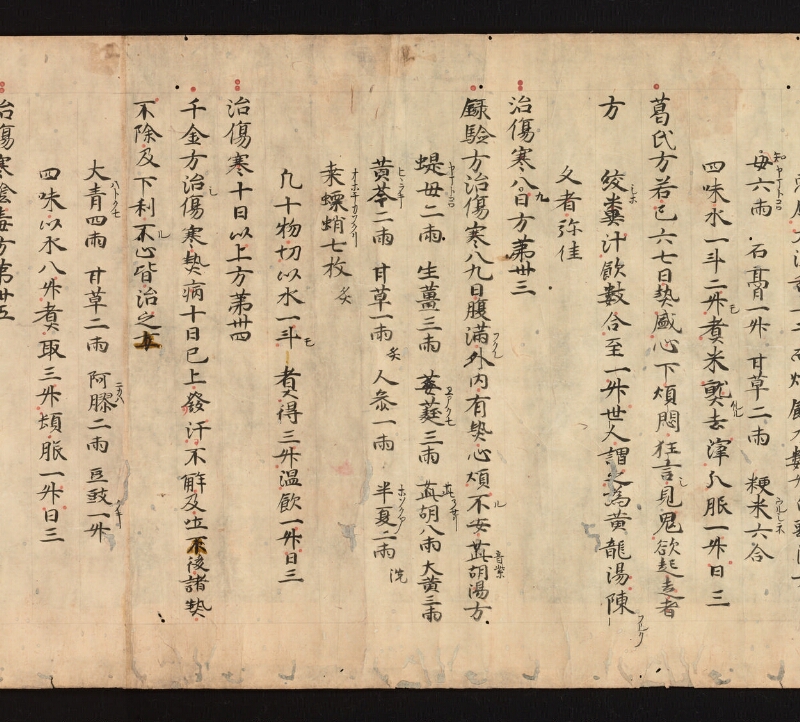 母六兩 石膏一升 甘草二兩 粳米六合
四味水一斗二升煮米熟去滓分服一升日三
葛氏方若已六七日熱盛心下煩悶狂言見鬼欲起走者
方 絞糞汁飲數合至一升世人謂之為黄龍湯陳
久者弥佳
治傷寒八九日方第卅三
録驗方治傷寒八九日腹滿外内有熱心煩不安茈胡湯方
蝭母二兩 生薑三兩 萎蕤三兩 茈胡八兩 大黄三兩
黄芩二兩 甘草一兩炙 人參一兩 半夏二兩洗
桒螵蛸七枚炙
凡十物切以水一斗煮得三升温飲一升日三
治傷寒十日以上方第卅四
千金方治傷寒熱病十日已上發汗不解及吐不後諸熱
不除及下利不心皆治之方
大青四兩 甘草二兩 阿膠二兩 豆豉一升
四味以水八升煮取三升煩服一升日三
治傷寒陰毒方第卅五